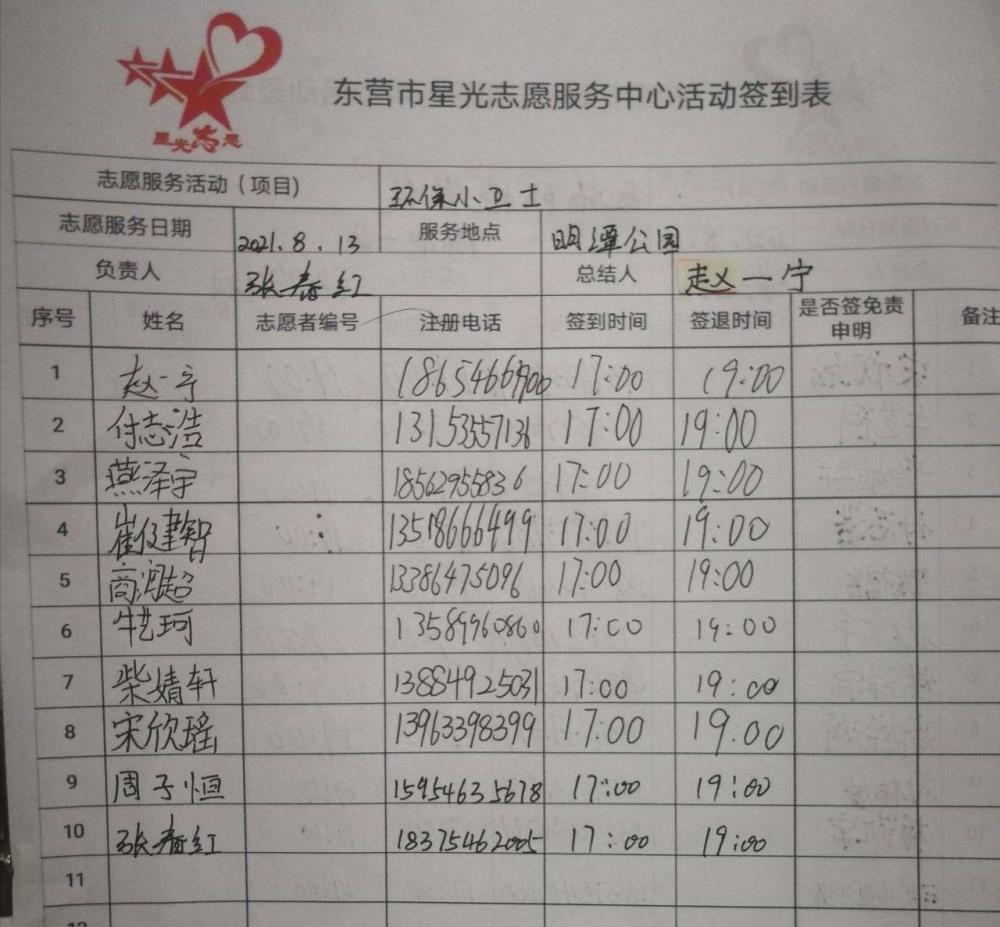 星光志愿
东营市星光志愿服务中心活动签到表
志愿服务活动(项目) 环保小卫士
志愿服务日期 2021.8.13 服务地点 明潭公园
负责人 张春红 总结人 赵一宁
序号 姓名 志愿者编号 注册电话 签到时间 签退时间 是否签免责申明 备注
1 赵一宁 18654666900 17:00 19:00
2 付志浩 13153557136 17:00 19:00
3 燕泽宇 18562955836 17:00 19:00
4 崔俊建智 13518666499 17:00 19:00
5 商润超 13386475096 17:00 19:00
6 牛艺珂 13589960860 17:00 19:00
7 柴婧轩 13884925031 17:00 19:00
8 宋欣瑶 13963398399 17:00 19.00
9 周子恒 15954635678 17:00 19:00
10 张春红 18375462005 17:00 19:00
11